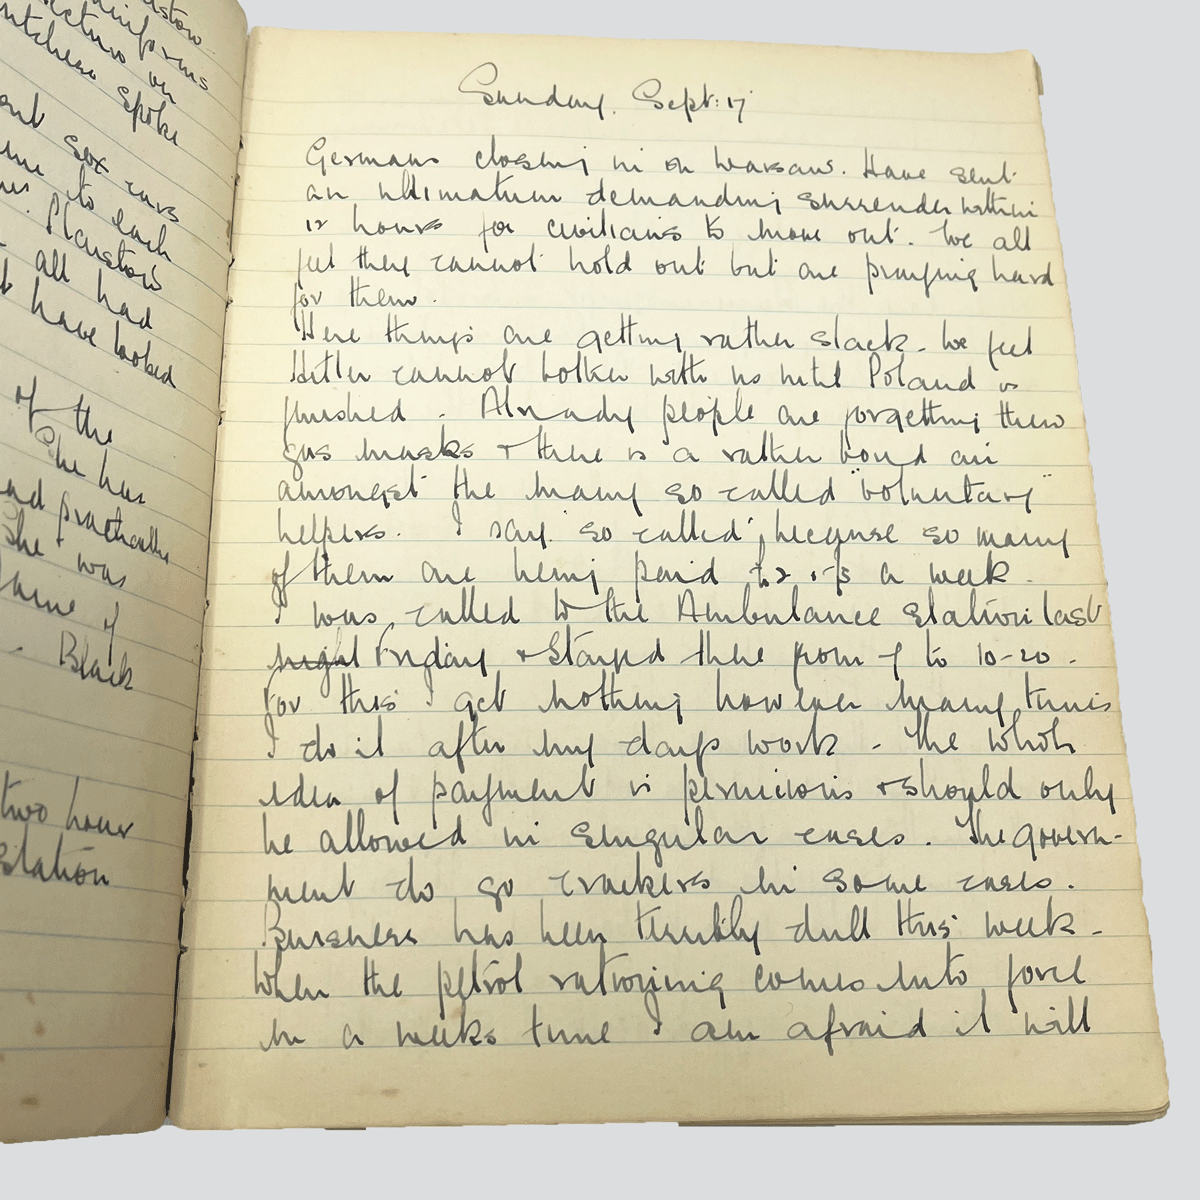 uniforms
lectures on
spoke
sent six cars
me to each
all had
have looked
of the
She has
and practically
She was
name of
Black
two hour
station
Sunday. Sept: 17
Germans closing in on Warsaw. Have sent
an ultimatum demanding surrender within
12 hours for civilians to move out. We all
feel they cannot hold out but are praying hard
for them.
Here things are getting rather slack. We feel
Hitler cannot bother with us until Poland is
finished. Already people are forgetting their
gas masks + there is a rather bored air
amongst the many so called "voluntary"
helpers. I say 'so called' because so many
of them are being paid a week.
I was called to the Ambulance Station last
night Friday + stayed there from 7 to 10-20.
For this I get nothing however many times
I do it after my days work. The whole
idea of payment is pernicious + should only
be allowed in singular cases. The govern-
ment do go crackers in some cases.
Business has been terribly dull this week.
When the petrol rationing comes into force
in a weeks time I am afraid it will